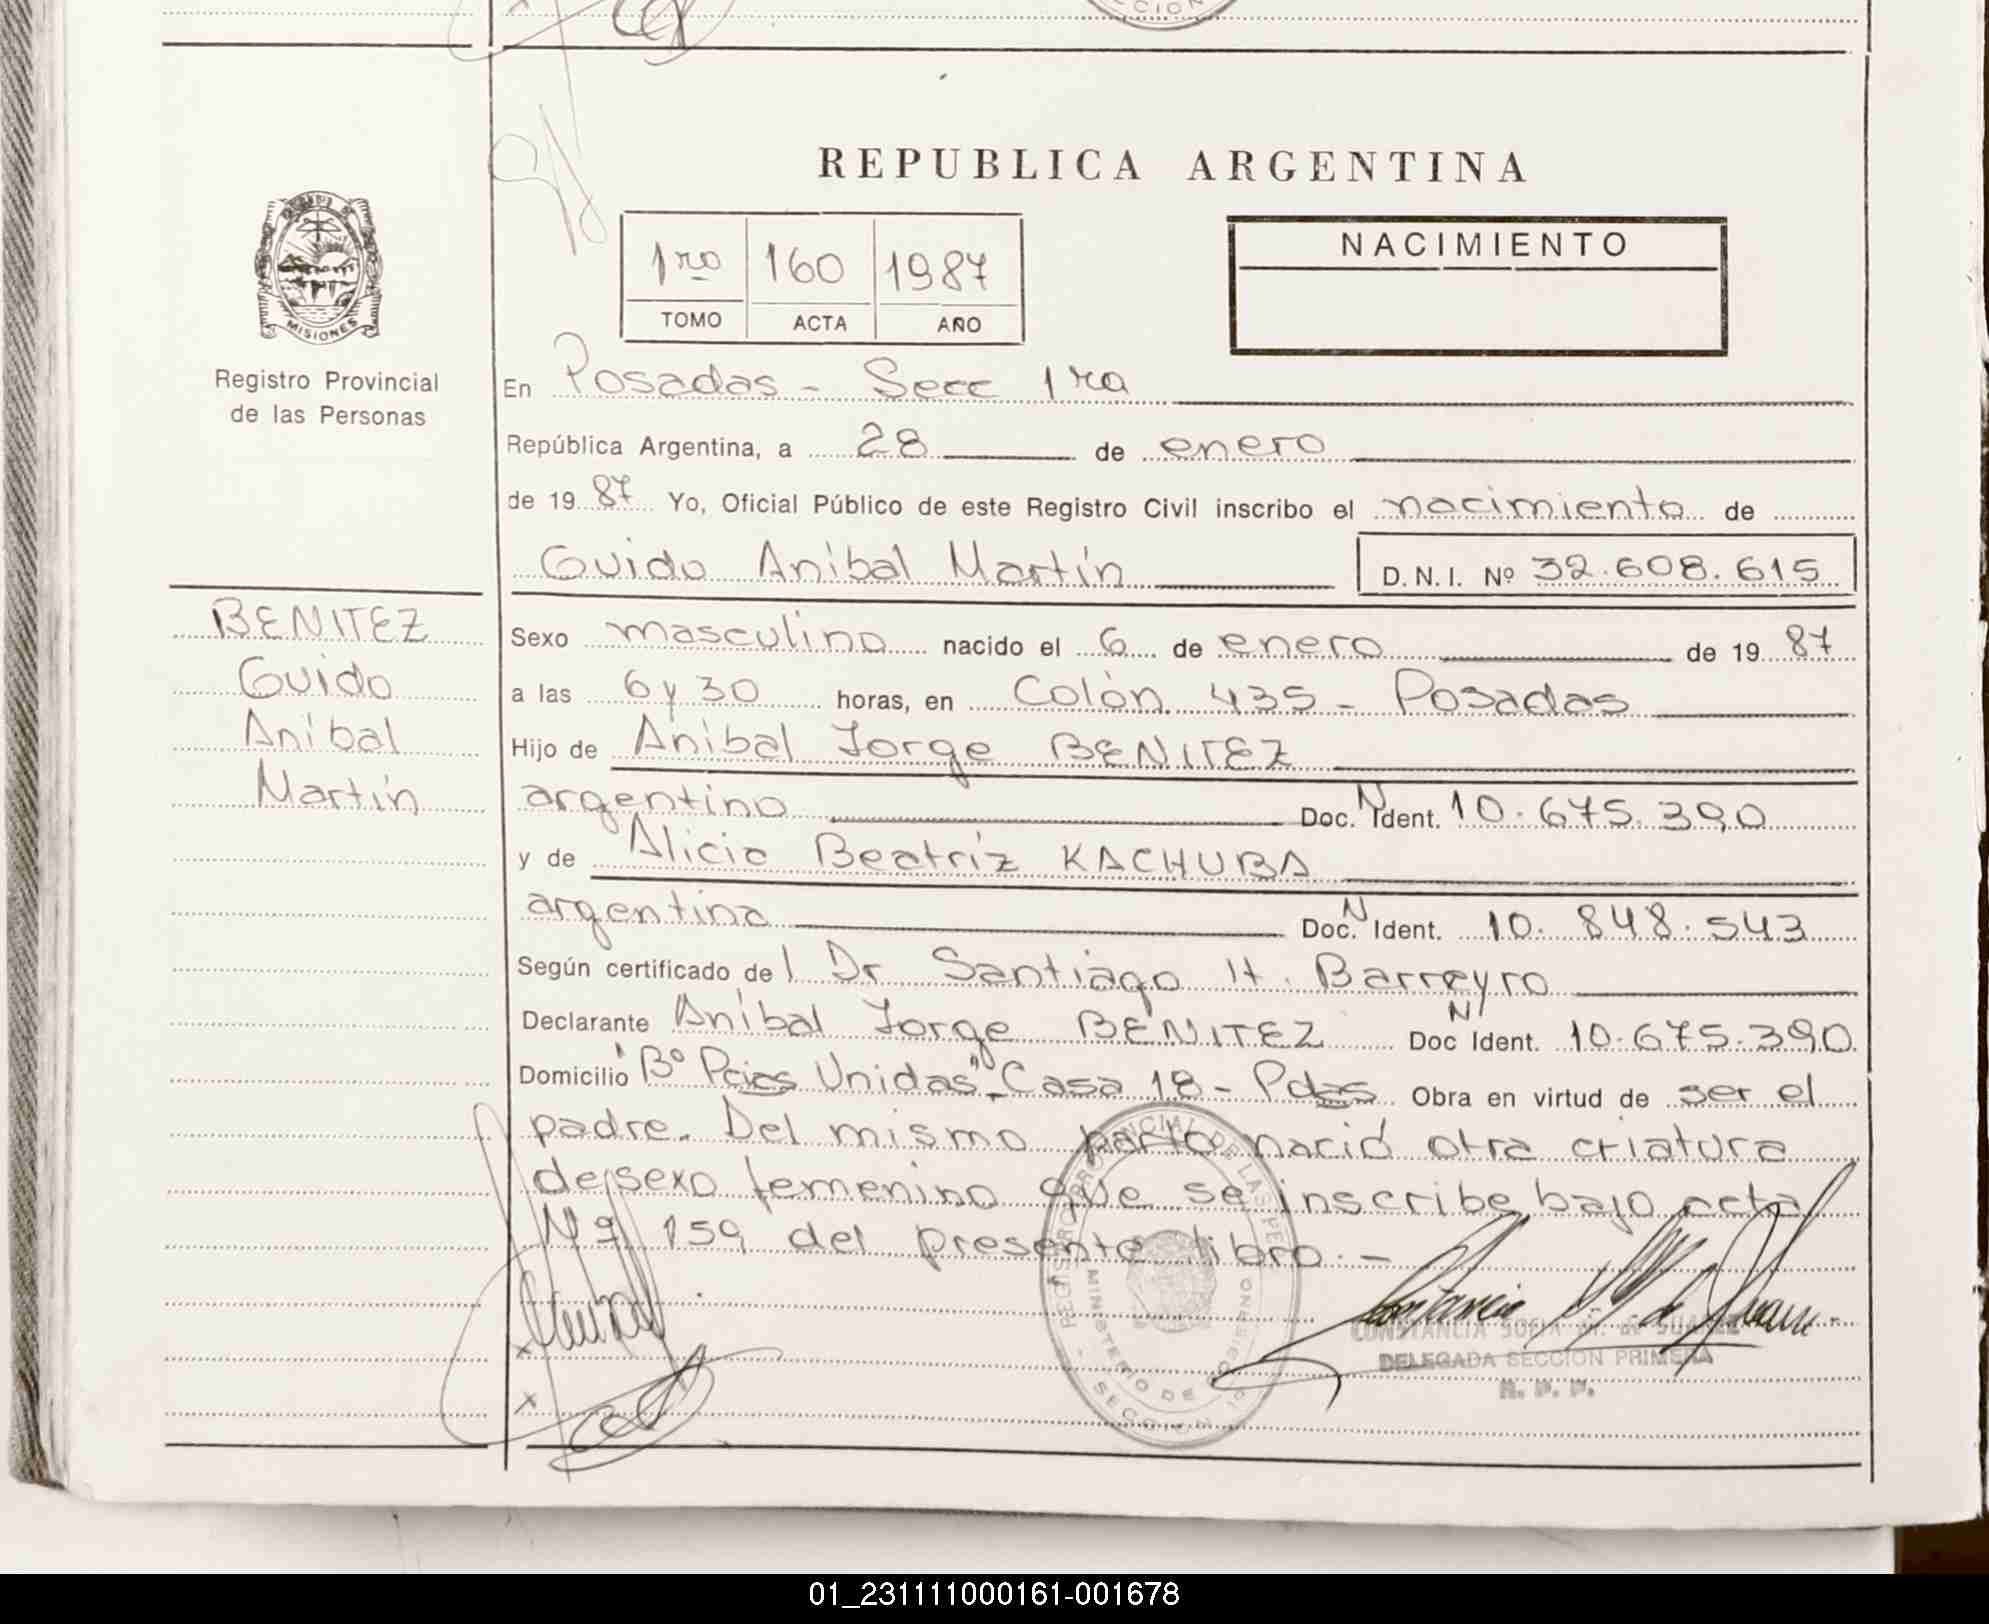 CCION
REPUBLICA ARGENTINA
1ro 160 1987
TOMO ACTA AÑO
NACIMIENTO
MISIONES
Registro Provincial
de las Personas
En Posadas - Secc 1ra
República Argentina, a 28 de enero
de 1987 Yo, Oficial Público de este Registro Civil inscribo el nacimiento de
Guido Aníbal Martín D.N.I. Nº 32.608.615
BENITEZ
Guido
Aníbal
Martín
Sexo masculino nacido el 6 de enero de 1987
a las 6 y 30 horas, en Colón 435 - Posadas
Hijo de Aníbal Jorge BENITEZ
argentino Doc. N Ident. 10.675.390
y de Alicia Beatríz KACHUBA
argentina Doc. N Ident. 10.848.543
Según certificado del Dr Santiago H. Barreyro
Declarante Aníbal Jorge BENITEZ Doc N Ident. 10.675.390
Domicilio "Bº Pcias Unidas" Casa 18 - Pdas Obra en virtud de ser el
padre. Del mismo parto nació otra criatura
de sexo femenino que se inscribe bajo acta
Nº 159 del presente libro. -
REGISTRO PROVINCIAL DE LAS PE
MINISTERIO DE GOBIERNO
SECCION 1
CONSTANCIA SOFIA M. de SUAREZ
DELEGADA SECCION PRIMERA
R. P. P.
x
x
01_231111000161-001678